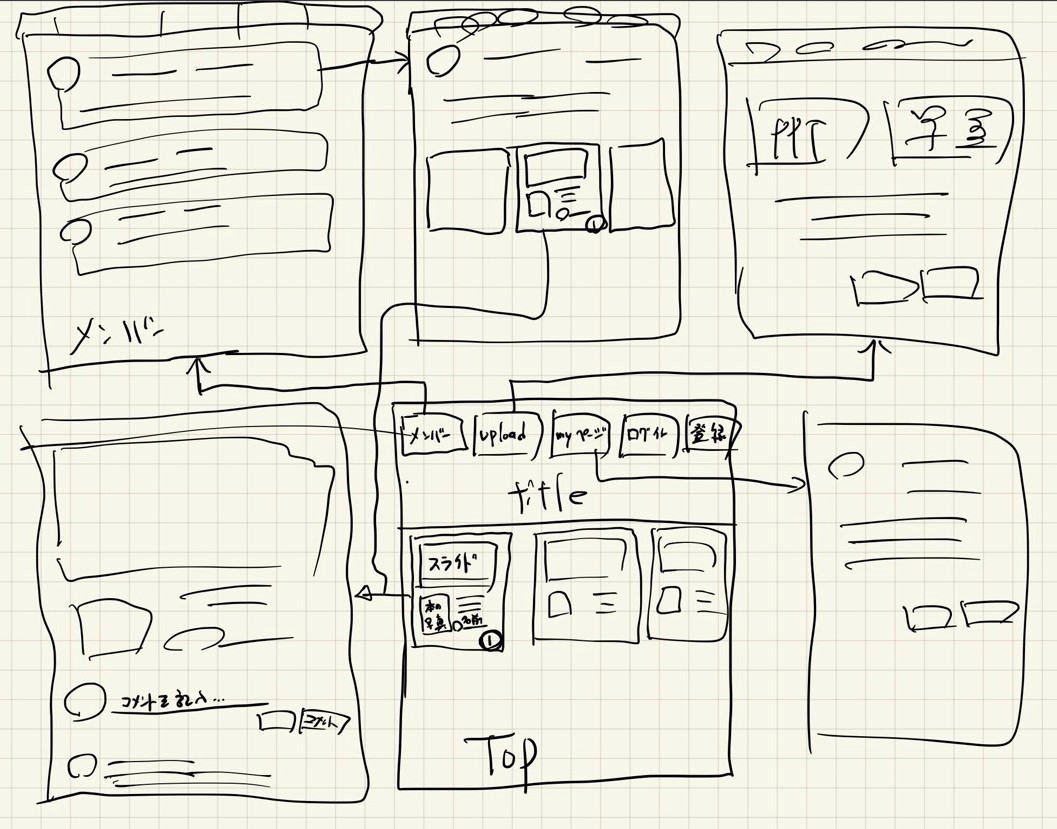 PPT
写真
メンバー
メンバー
upload
myページ
ログイン
登録
title
スライド
本の
写真
名前
1
1
コメントを記入...
コメント
Top